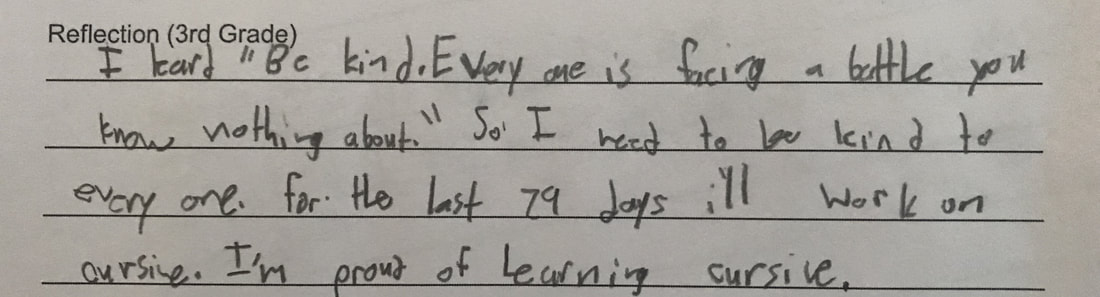 Reflection (3rd Grade)
I heard "Be kind. Every one is facing a battle you
know nothing about." So I need to be kind to
every one. for the last 79 days i'll work on
cursive. I'm proud of learning cursive.